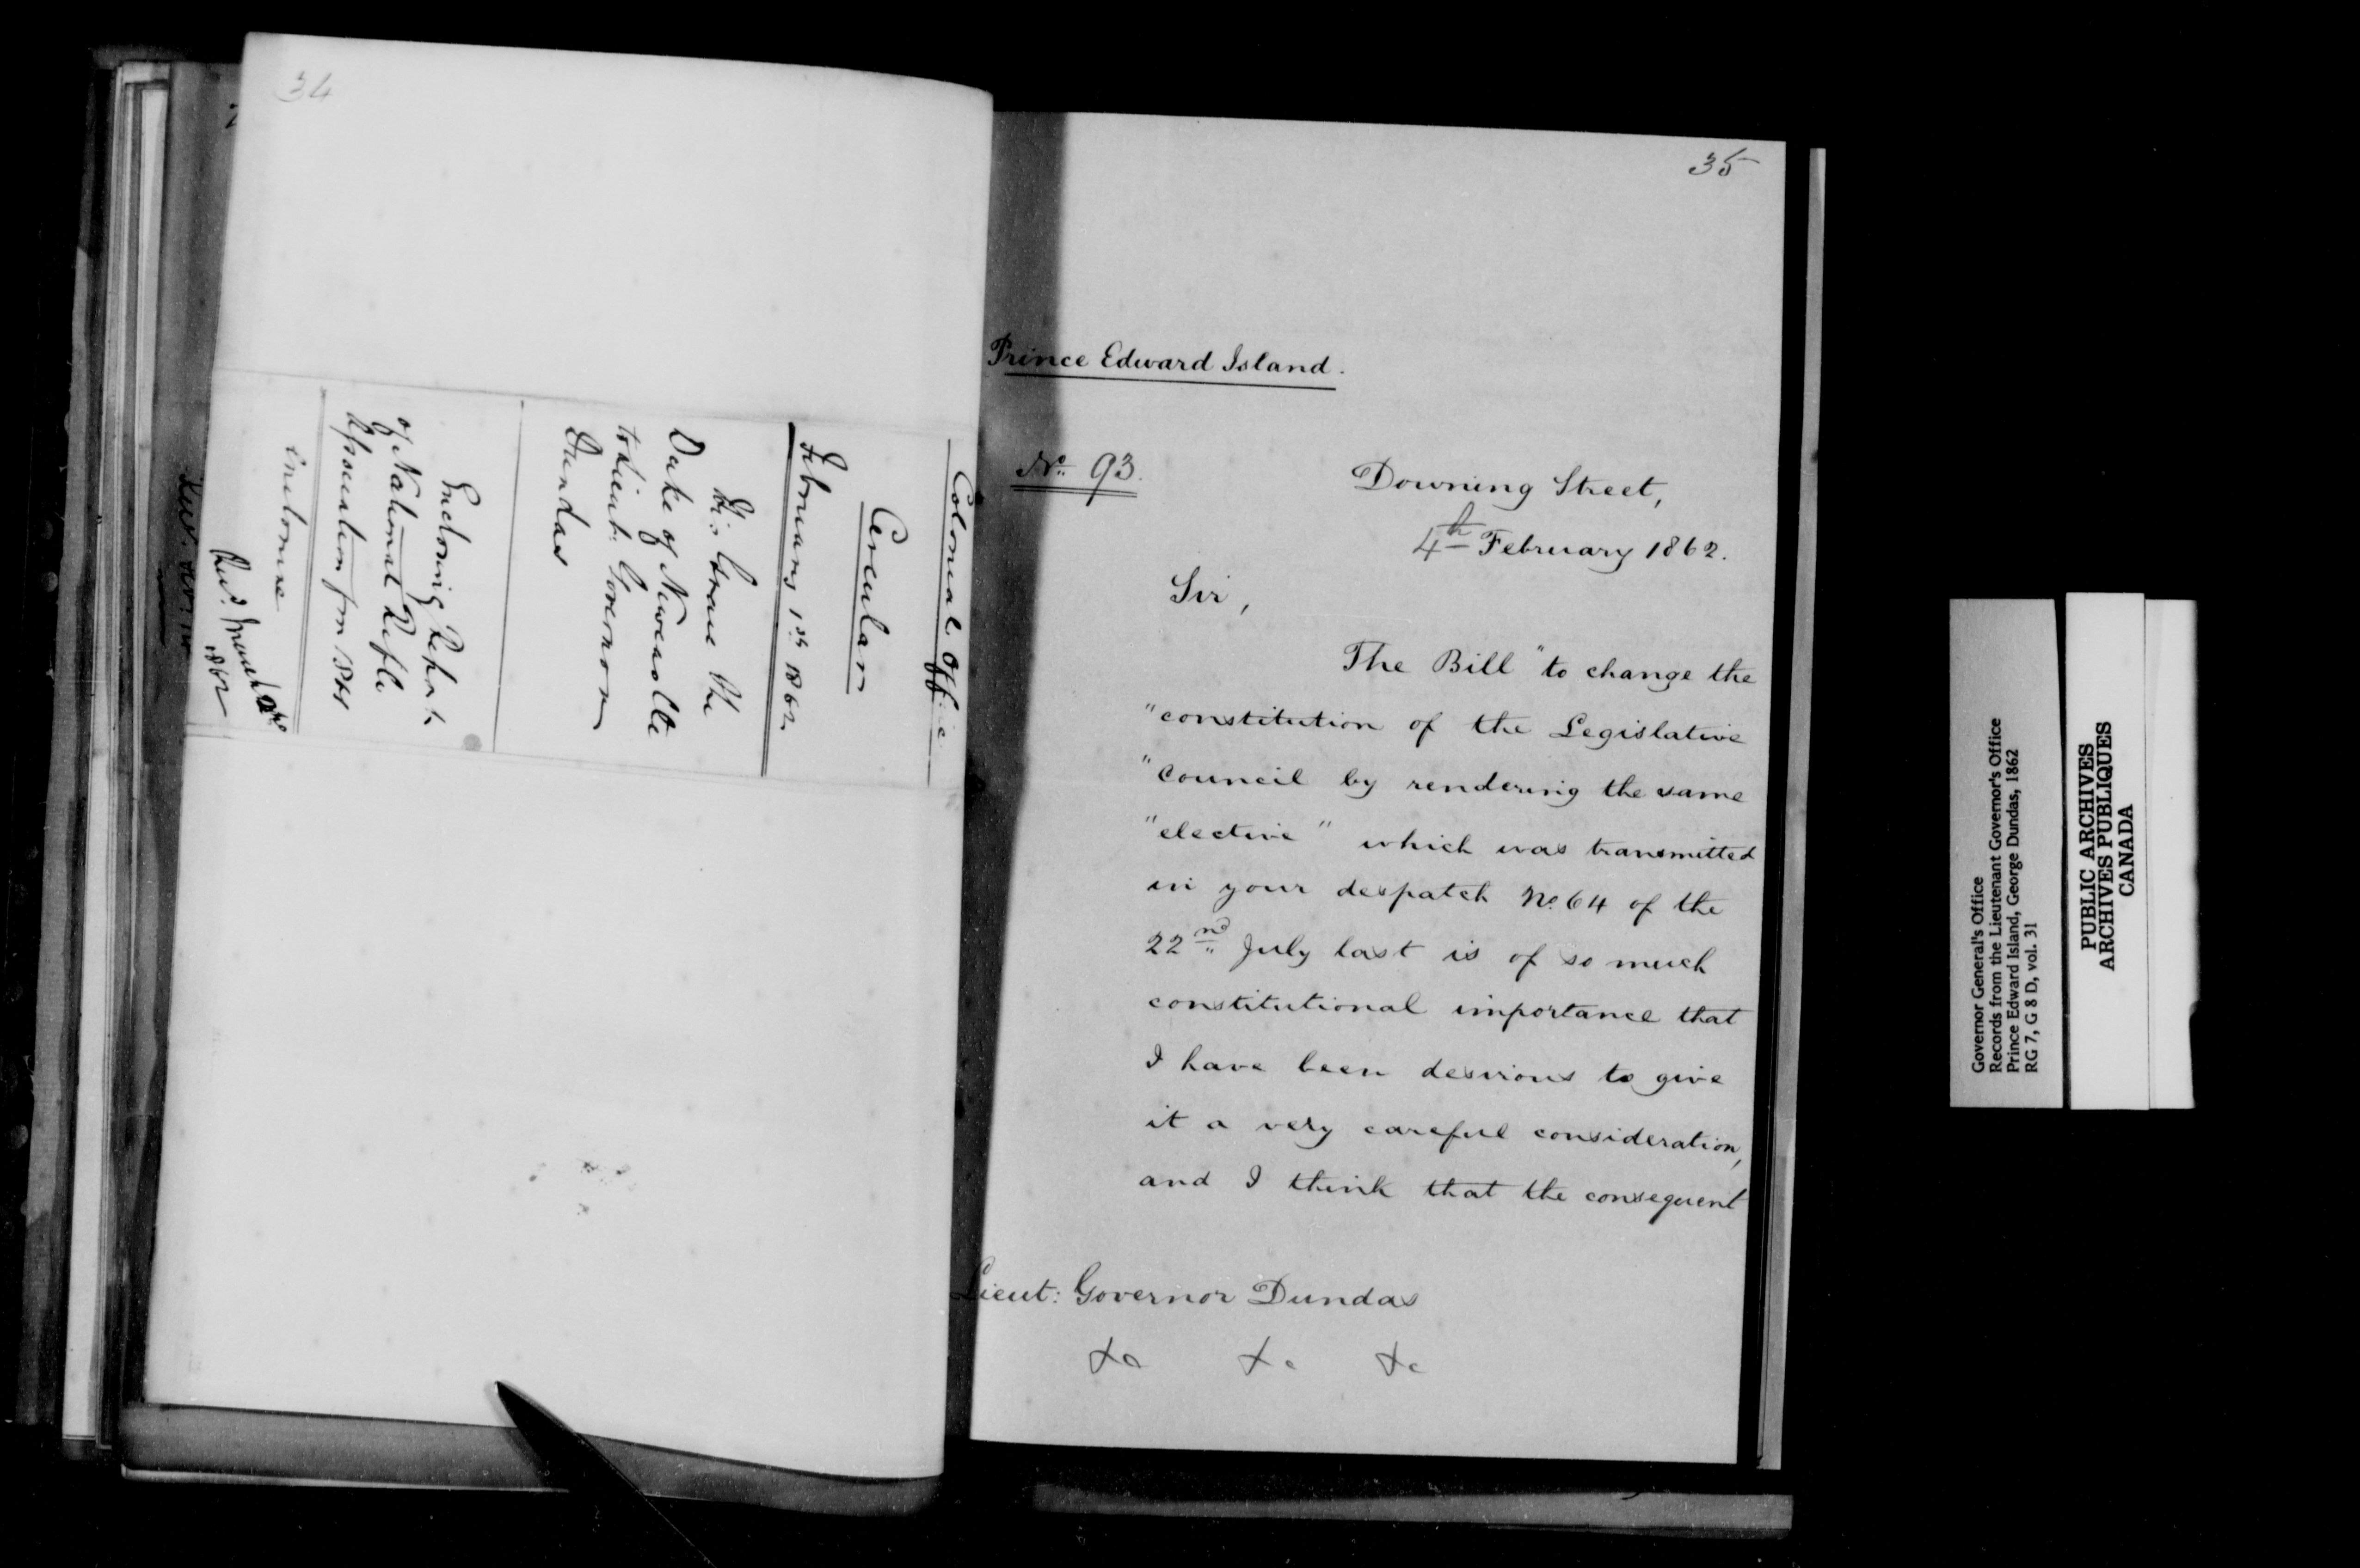 34
Colonial Office
Circular
February 1st 1862
His Grace the
Duke of Newcastle
to Lieut: Governor
Dundas
Enclosing Report
of National Rifle
Association for 1861
inclosure
Recd.
1862
35
Prince Edward Island.
No. 93.
Downing Street,
4th February 1862.
Sir,
The Bill "to change the
"constitution of the Legislative
"Council by rendering the same
"elective" which was transmitted
in your despatch No. 64 of the
22nd July last is of so much
constitutional importance that
I have been desirous to give
it a very careful consideration,
and I think that the consequent
Lieut: Governor Dundas
&c &c &c
Governor General's Office
Records from the Lieutenant Governor's Office
Prince Edward Island, George Dundas, 1862
RG 7, G 8 D, vol. 31
PUBLIC ARCHIVES
ARCHIVES PUBLIQUES
CANADA